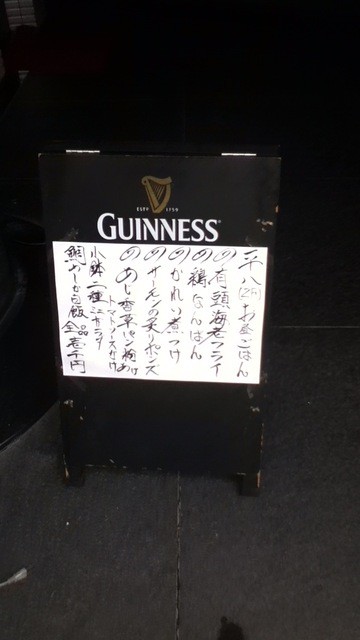 ESTD 1759
GUINNESS
平八(2F)お昼ごはん
の 有頭海老フライ
の 鶏なんばん
の かれい煮つけ
の サーモンの炙りポンズ
の あじ香草パン粉あげ
トマトソースがけ
小鉢二種
鯛めしか白飯 全品壱千円